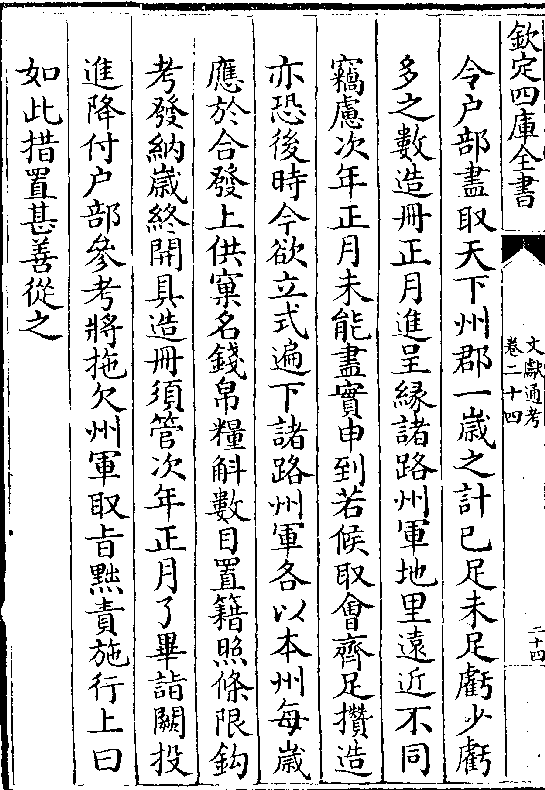 欽定四庫全書
文獻通考
卷二十四
二十四
令户部盡取天下州郡一歲之計已足未足虧少虧
多之數造冊正月進呈緣諸路州軍地里逺近不同
竊慮次年正月未能盡實申到若候取會齊足攢造
亦恐後時今欲立式遍下諸路州軍各以本州每歲
應於合發上供窠名錢帛糧斛數目置籍照條限鈎
考發納歲終開具造冊須管次年正月了畢詣闕投
進降付户部參考將拖欠州軍取㫖黜責施行上曰
如此措置甚善從之